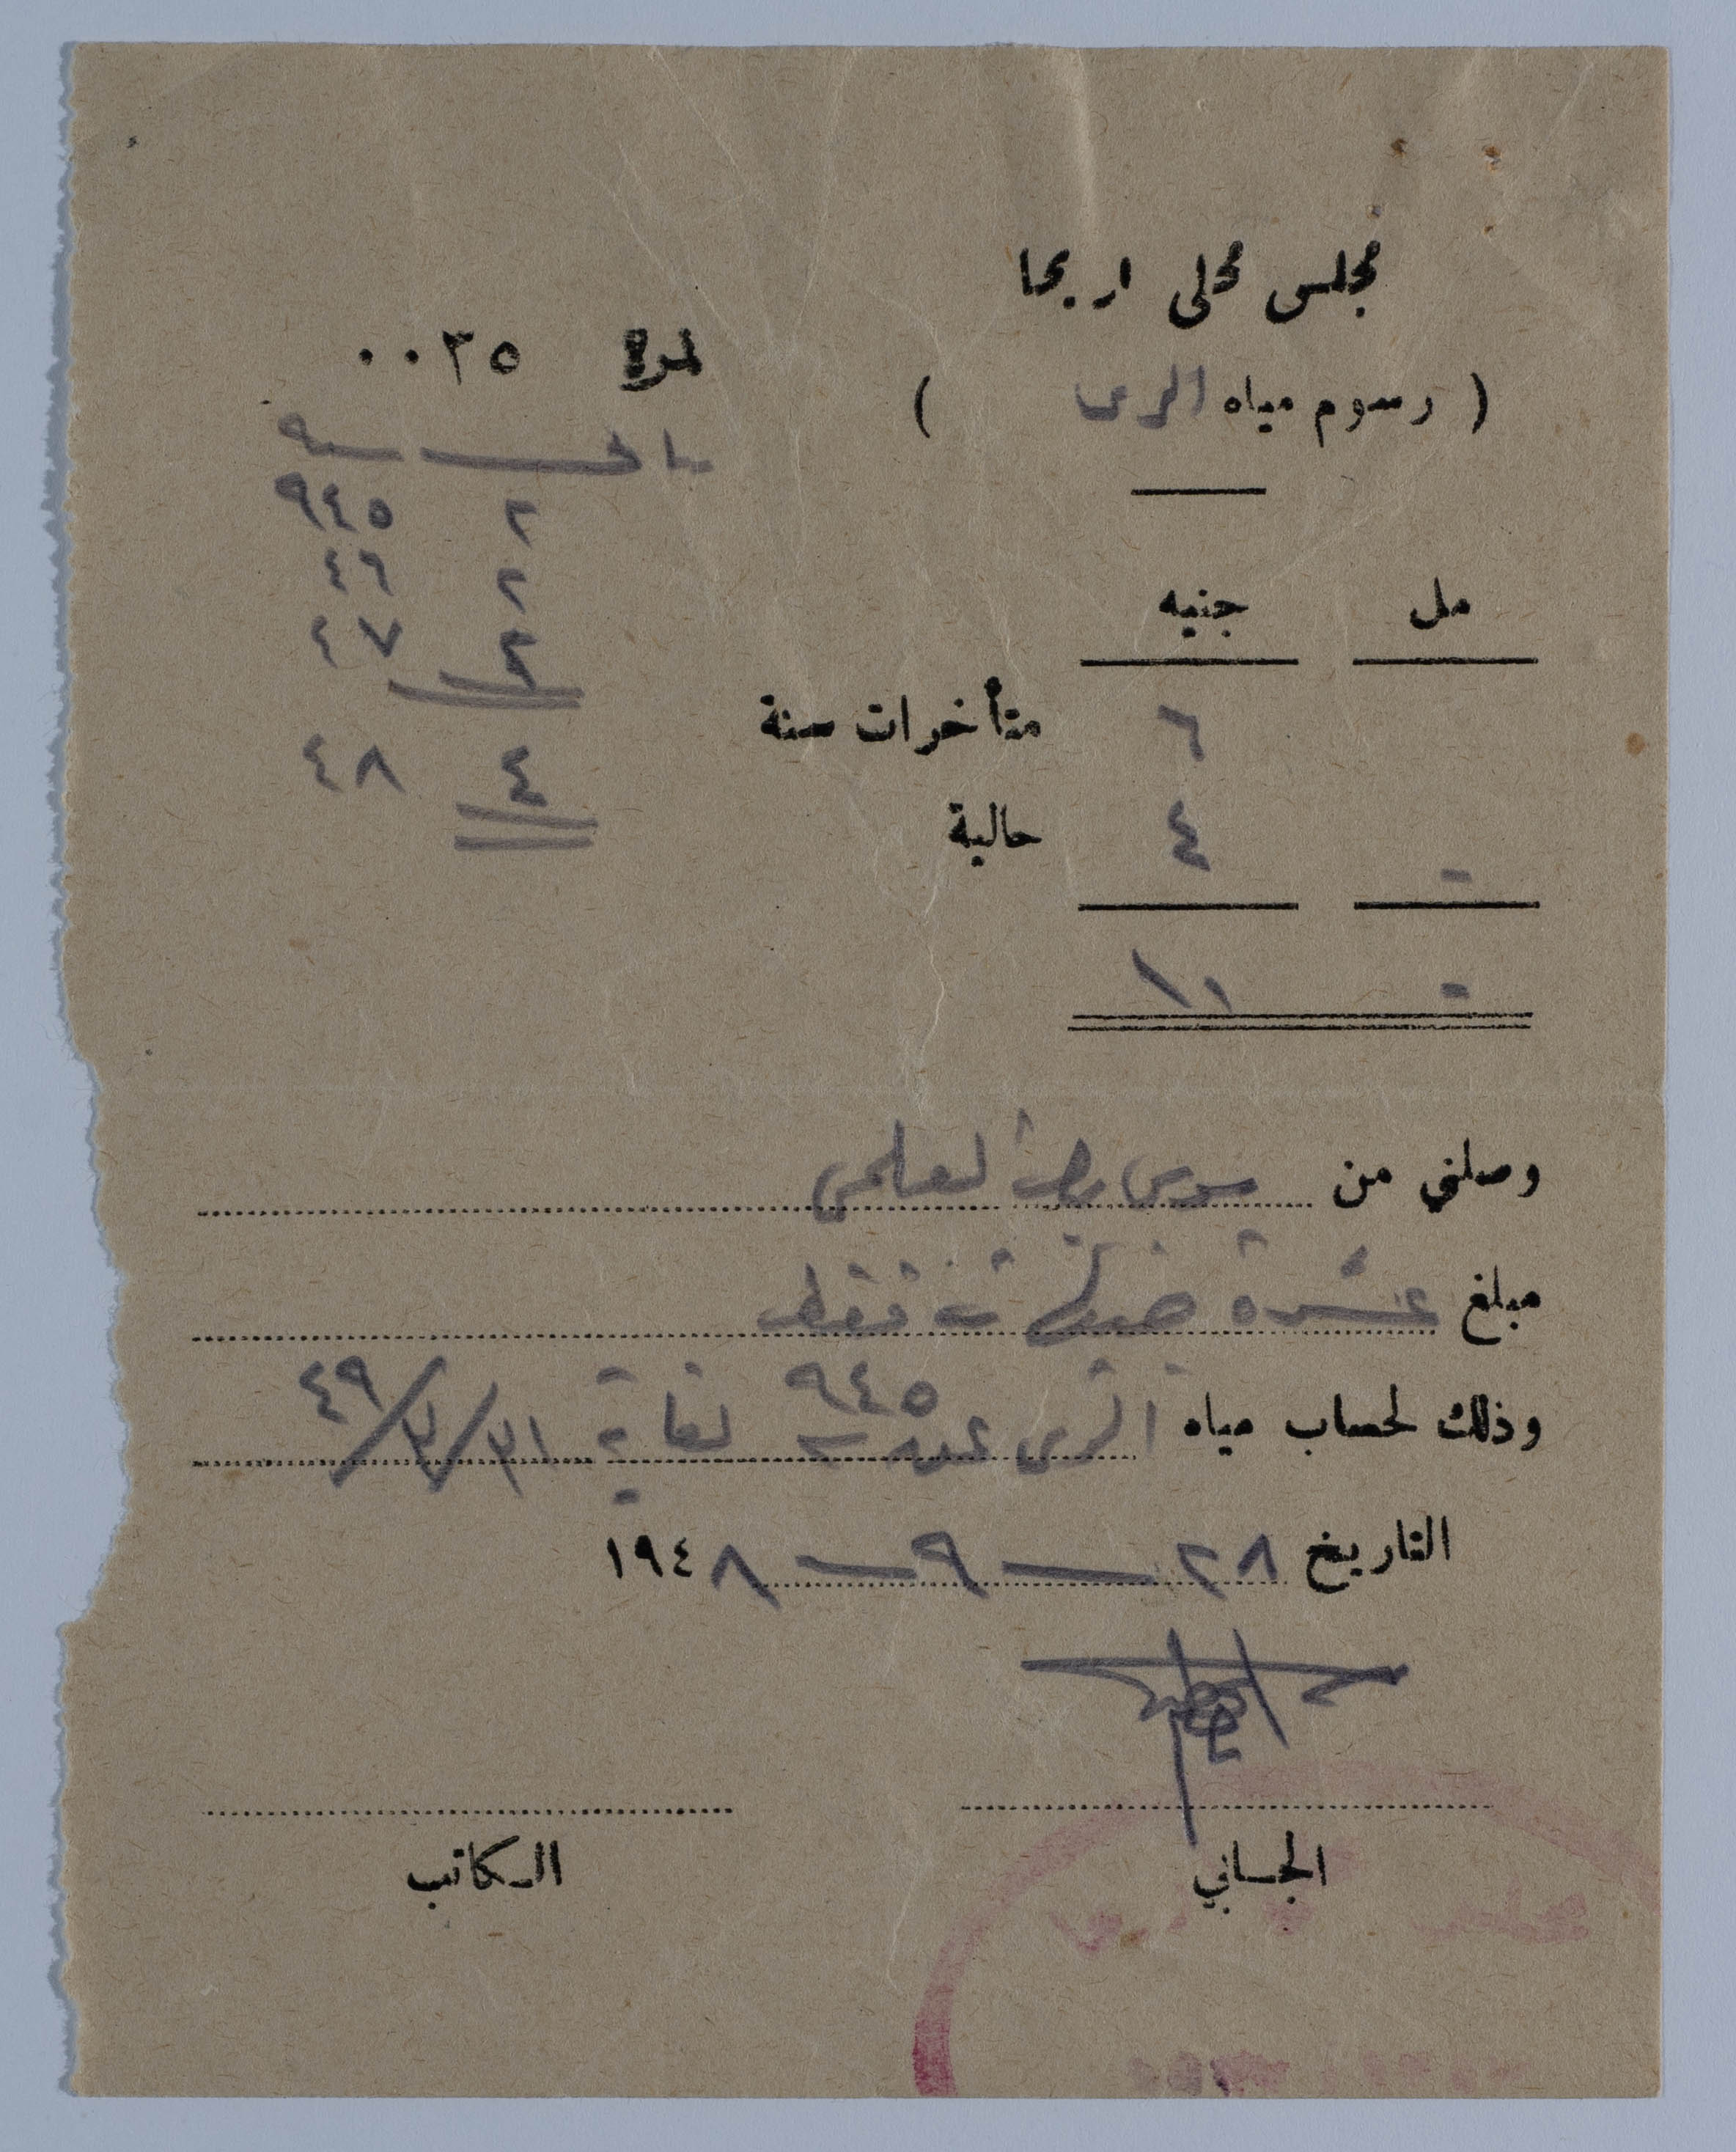 مجلس محلي اريحا
نمرة ٠٠٣٥
( رسوم مياه الري )
سنة
٢ ٩٤٥
٢ ٤٦
٢ ٤٧
٤ ٤٨
مل جنيه
٦ متأخرات سنة
- ٤ حالية
- ١٠
وصلني من موسى بك العلمي
مبلغ عشرة جنيهات فقط
وذلك لحساب مياه الري عن سنة ٩٤٥ لغاية ٣١/٣/٤٩
التاريخ ٢٨ — ٩ — ١٩٤٨
الجابي
الكاتب